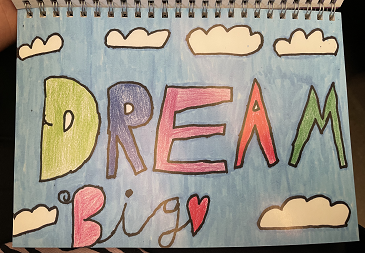 DREAM
Big